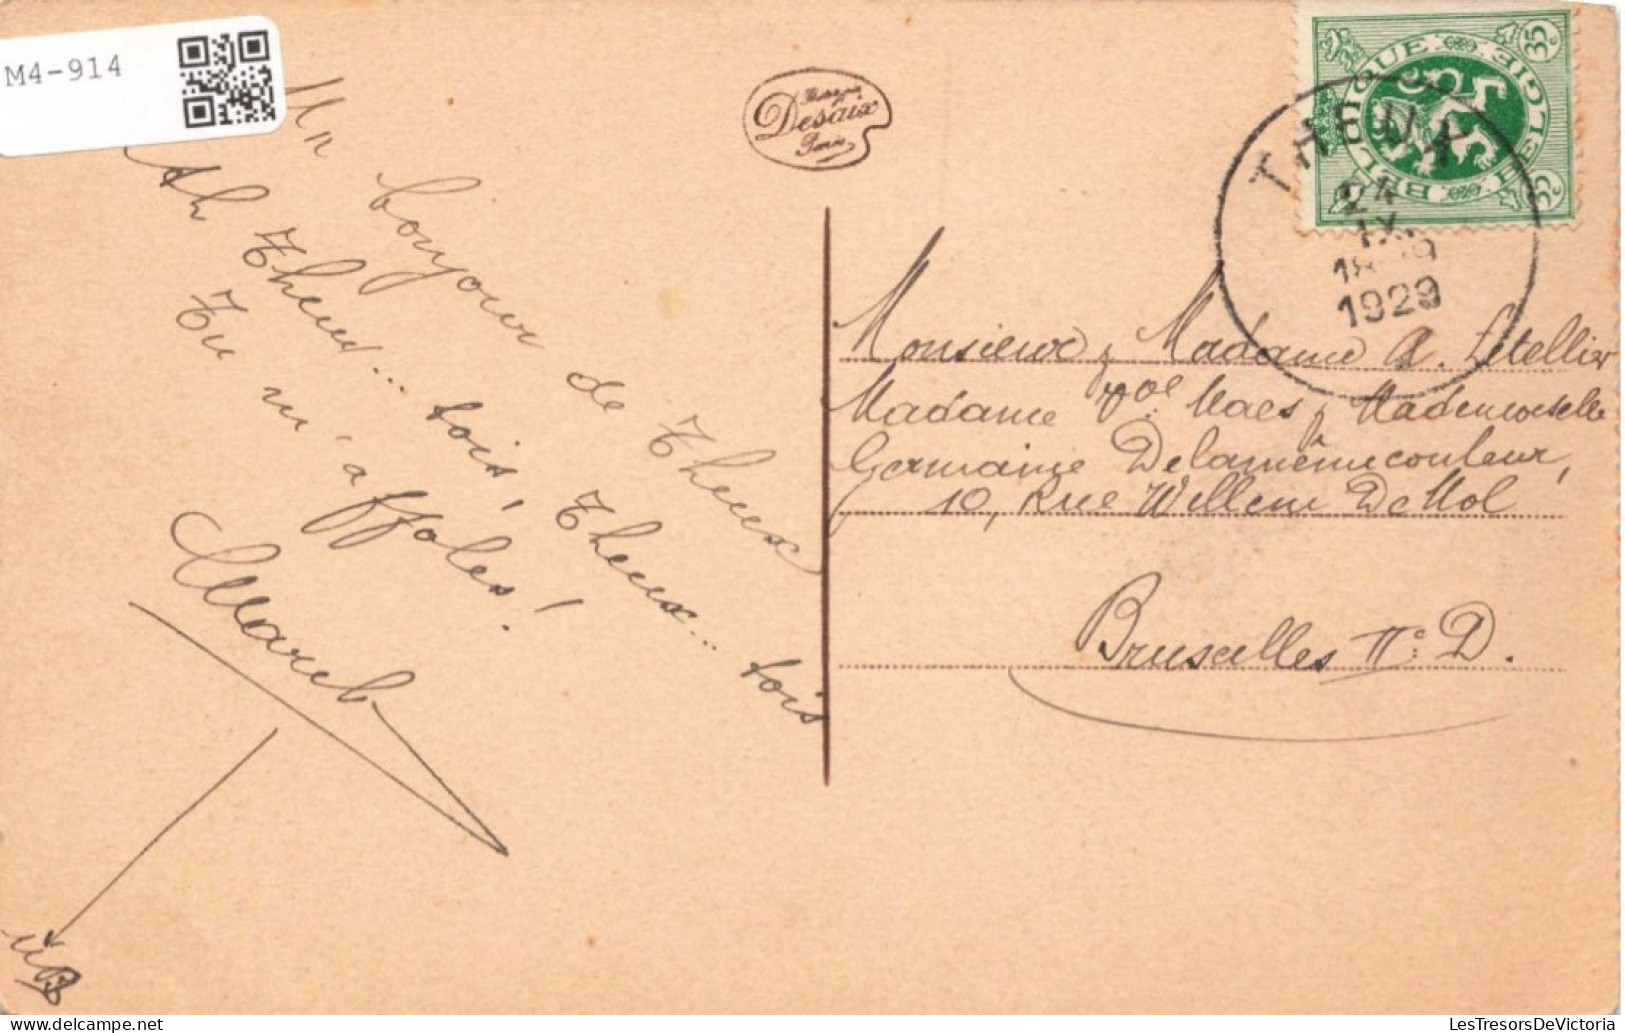 M4-914
Un bonjour de Theux
Ah Theux... tois, Theux... tois
Tu m'affoles!
Marcel
Desaix
BELGIQUE BELGIE
35c 35c
THEUX
24
IX
1929
Monsieur & Madame A. Letellier
Madame Vve Maes & Mademoiselle
Germaine Delamêmecouleur,
10, Rue Willem De Mol
Bruxelles IIe D.
LesTresorsDeVictoria